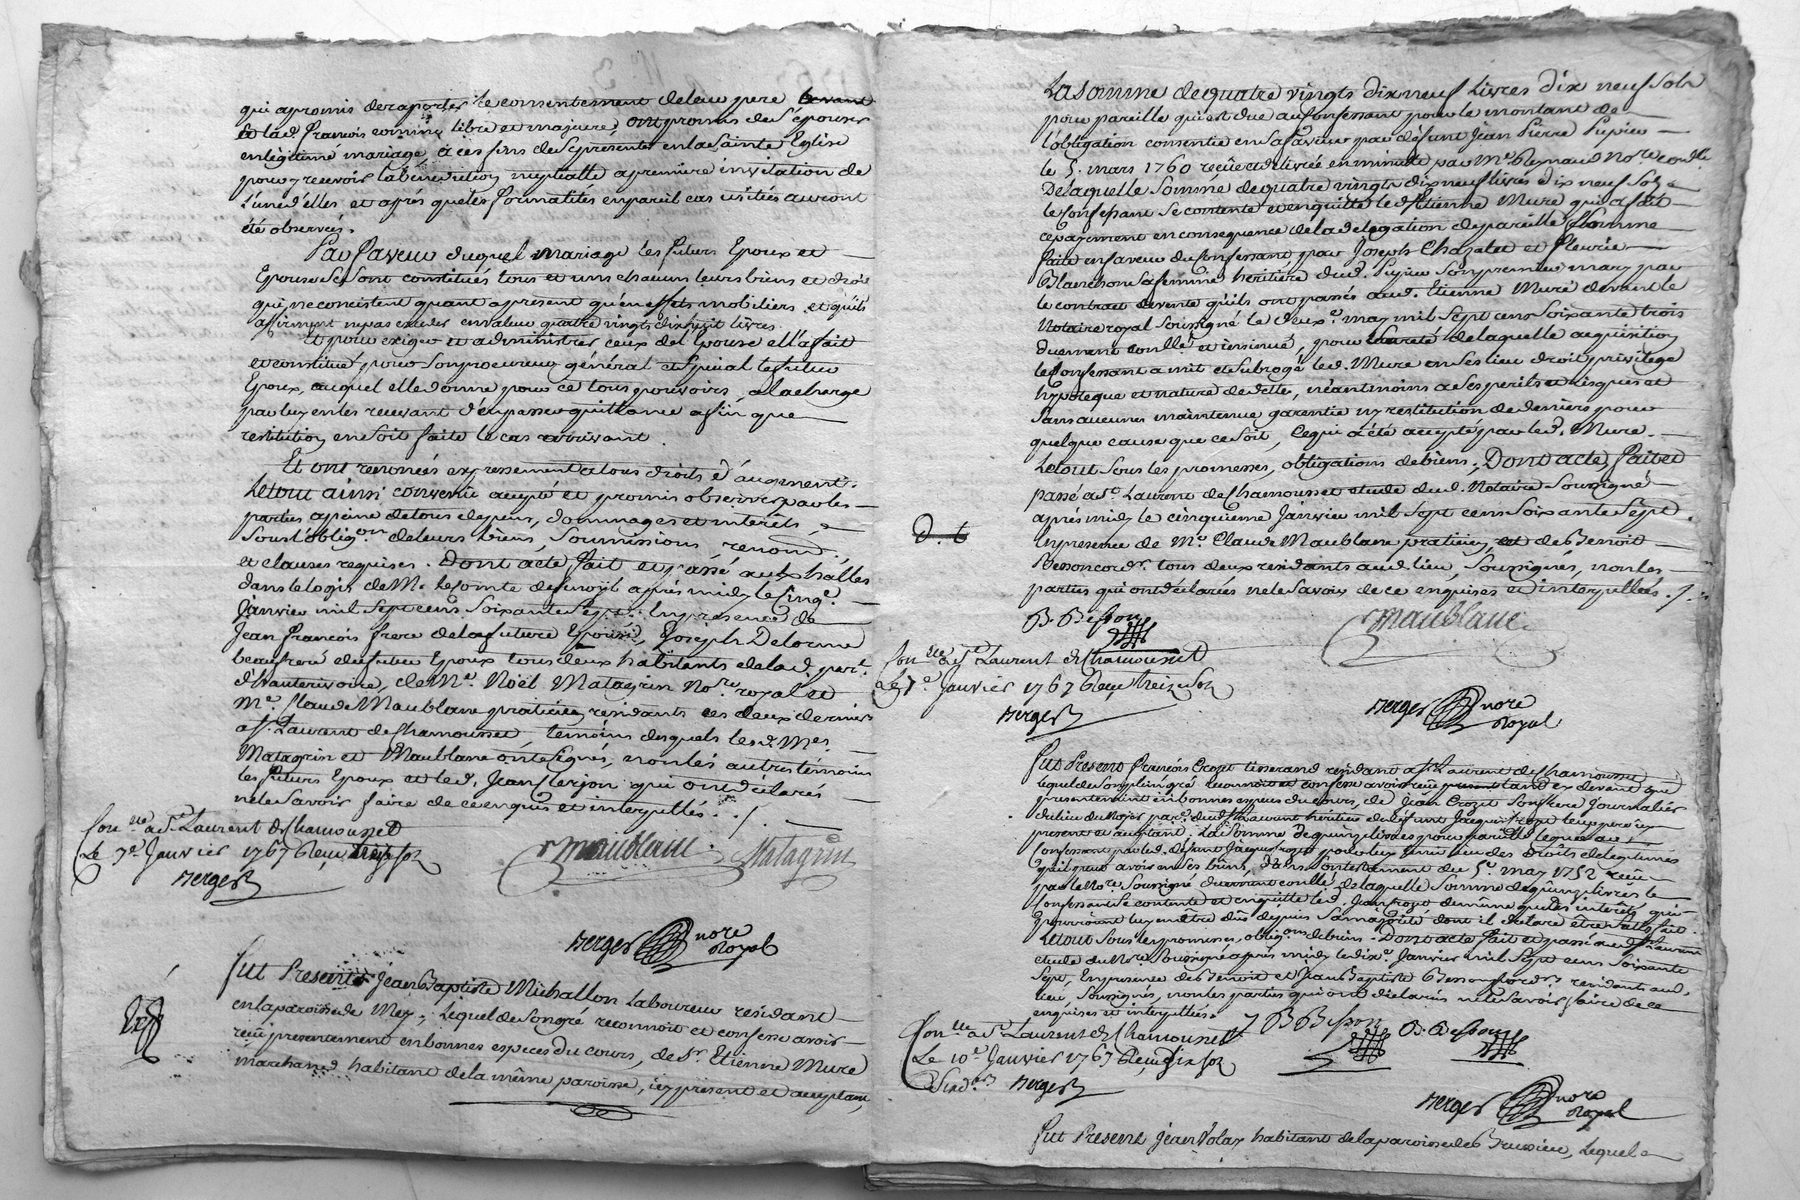 qui a promis de raporter le consentement de leur pere
lad. François comme libre et majeure, ont promis de S'épouser
en legitime mariage, à ces fins de se presenter en la Sainte Eglise
pour y recevoir la bénédiction nuptialle a premiere invitation de
L'une d'elles et aprés que les formalités en pareil cas usitées auront
été observées.
En faveur duquel mariage les futurs Epoux et
Epouse se sont constitués tous et uns chacun leurs biens et droits
qui ne consistent quant a present qu'en effets mobiliers, et qu'ils
affirment ne pas exceder en valeur quatre vingts dix huit livres
Et pour exiger et administrer ceux de l'Epouse elle a fait
et constitué pour Son procureur général et Special le futur
Epoux, auquel elle donne pour ce tous pouvoirs, a la charge
par luy en les recevant d'en passer quittance afin que
restitution en Soit faite le cas arrivant.
Et ont renoncés expressement a tous droits d'augment.
Le tout ainsi convenu accepté et promis observer par les
parties a peine de tous depens, dommages et interêts,
Sous l'oblig.on de leurs biens, Soumissions, renond.
et clauses requises. Dont acte fait et passé aux halles
dans le logis de M. le Comte de après midy le Cinq.e
Janvier mil Sept cens Soixante Sept. En presence de
Jean François frere de la future Epouse, Joseph Delorme
beaufrere du futur Epoux tous deux habitants de lad. par.e
d'hauterivoire, de M.e Noël Matagrin No.re royal et
M.e Claude Maublanc praticien residants ces deux derniers
a S.t Laurent de Chamousset, temoins desquels lesd. M.es
Matagrin et Maublanc ont signés, non les autres témoins
les futurs Epoux et led. Jean Clerjon qui ont déclarés
ne le Savoir faire de ce enquis et interpellés. ./.
Con.llé a S.t Laurent de Chamousset
Le 7.e Janvier 1767 Reçu treize sols
Berger
Maublanc Matagrin
Berger nore
Royal
Fut Present Jean Baptiste Michallon Laboureur residant
en la paroisse de Mey, Lequel de Son gré reconnoit et confesse avoir
reçu presentement en bonnes especes du cours, de S.r Etienne Mure
marchand habitant de la même paroisse, icy present et acceptant,
La Somme de quatre vingts dix neuf Livres dix neuf Sols
pour pareille qui est due au confessant pour le montant de
l'obligation consentie en Sa faveur par défunt Jean Pierre Pupier
le 5. mars 1760 reçue et delivrée en minute par M.e Reynaud No.re
De laquelle Somme de quatre vingts dix neuf livres dix neuf Sols
le Confessant Se contente et en quitte led. Etienne Mure qui a fait
ce payement en consequence de la delegation de pareille Somme
faite en faveur du confessant par Joseph Chazalet et Fleurie
Blanchon Sa femme héritiere dud. Pupier Son premier mary par
le contract de vente qu'ils ont passés aud. Etienne Mure devant le
Notaire royal Soussigné le deux.e may mil Sept cens Soixante trois
duement conllé et insinué, pour Sureté de laquelle acquisition
le Confessant a mis et Subrogé led. Mure en Ses lieu droit privilege
hypoteque et nature de dette, néantmoins a Ses perils et risques et
Sans aucune maintenue garentie ny restitution de deniers pour
quelque cause que ce soit, Ce qui a été accepté par led. Mure.
Le tout Sous les promesses, obligations de biens. Dont acte, fait et
passé a S.t Laurent de Chamousset etude dud. Notaire Soussigné
après midy le cinquieme Janvier mil Sept cens Soixante Sept.
En presence de M.e Claude Maublanc praticien, et de Benoit
Besson cord.r tous deux residants aud. lieu, Soussignés, non les
parties qui ont déclarées ne le Savoir de ce enquises et interpellées. ./.
D. t
B. Besson Maublanc
Con.llé a S.t Laurent de Chamousset
Le 7.e Janvier 1767 Reçu treize sols
Berger
Berger nore
Royal
Fut Present François Crozet tisserand residant a S.t Laurent de Chamousset
lequel de Son plein gré reconnoit et confesse avoir reçu tant cy devant que
presentement en bonnes especes du cours, de Jean Crozet Son frere Journalier
present et acceptant, La Somme de quinze livres pour pareille leguée au
confessant par led. defunt Jacques Crozet pour luy tenir lieu des droits de legitimes
qu'il peut avoir en Ses biens, dans Son testament du 5.e may 1752 reçu
par le No.re Soussigné duement conllé, de laquelle Somme de quinze livres le
Confessant Se contente et en quitte led. Jean Crozet de même que des interêts qui
pourroient luy en être dûs depuis Sa majorité dont il declare être Satisfait.
Le tout Sous les promesses, oblig.ons de biens. Dont acte fait et passé aud. S.t Laurent
etude du No.re Soussigné après midy le dix.e Janvier mil Sept cens Soixante
Sept, En presence de Benoit et Jean Baptiste Besson cord.rs residants aud.
lieu, Soussignés, non les parties qui ont declarées ne le Savoir faire de ce
enquises et interpellées. ./.
B Besson B. Besson
Con.llé a S.t Laurent de Chamousset
Le 10.e Janvier 1767 Reçu Six sols
Berger
Berger nore
Royal
Fut Present Jean Volay habitant de la paroisse de Brussieu, Lequel